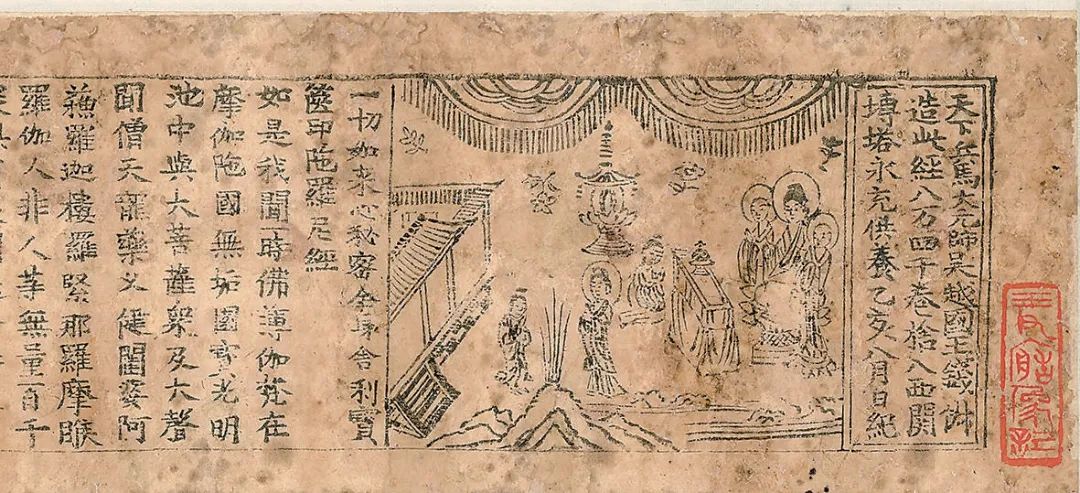 天下兵馬大元帥吳越國王錢俶
造此經八万四千卷捨入西關
塼塔永充供養乙亥八月日紀
一切如来心秘密全身舍利寶
篋印陁羅尼經
如是我聞一時佛薄伽梵在
摩伽陁國無垢園寶光明
池中與大菩薩衆及大聲
聞僧天龍藥叉健闥婆阿
蘓羅迦樓羅緊那羅摩睺
羅伽人非人等無量百千